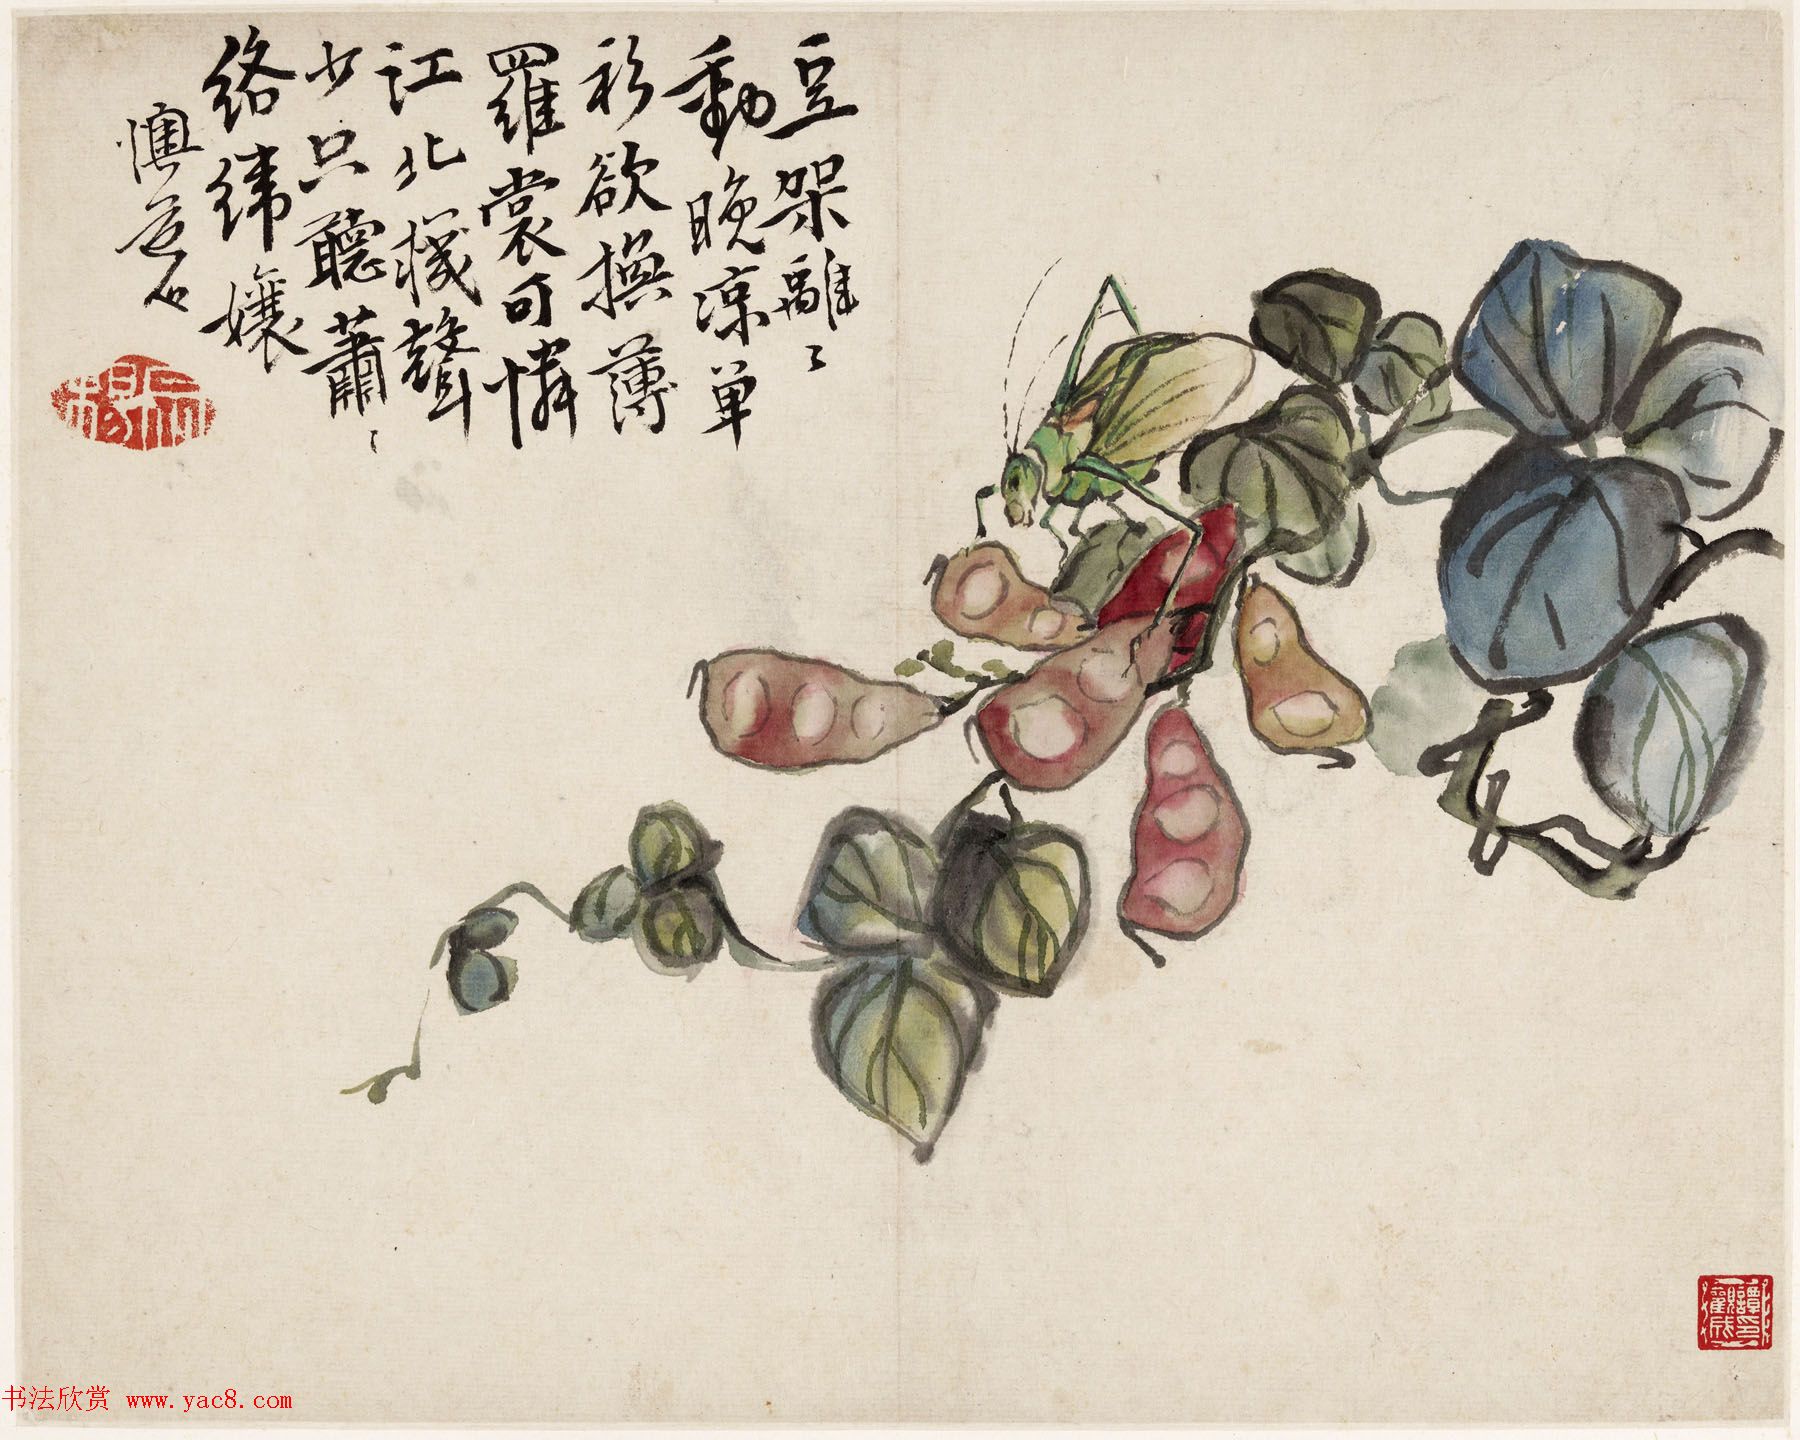 豆架離〻
動晚涼單
衫欲換薄
羅裳可憐
江北機聲
少只聽蕭〻
絡緯孃
懊道人
书法欣赏 www.yac8.com